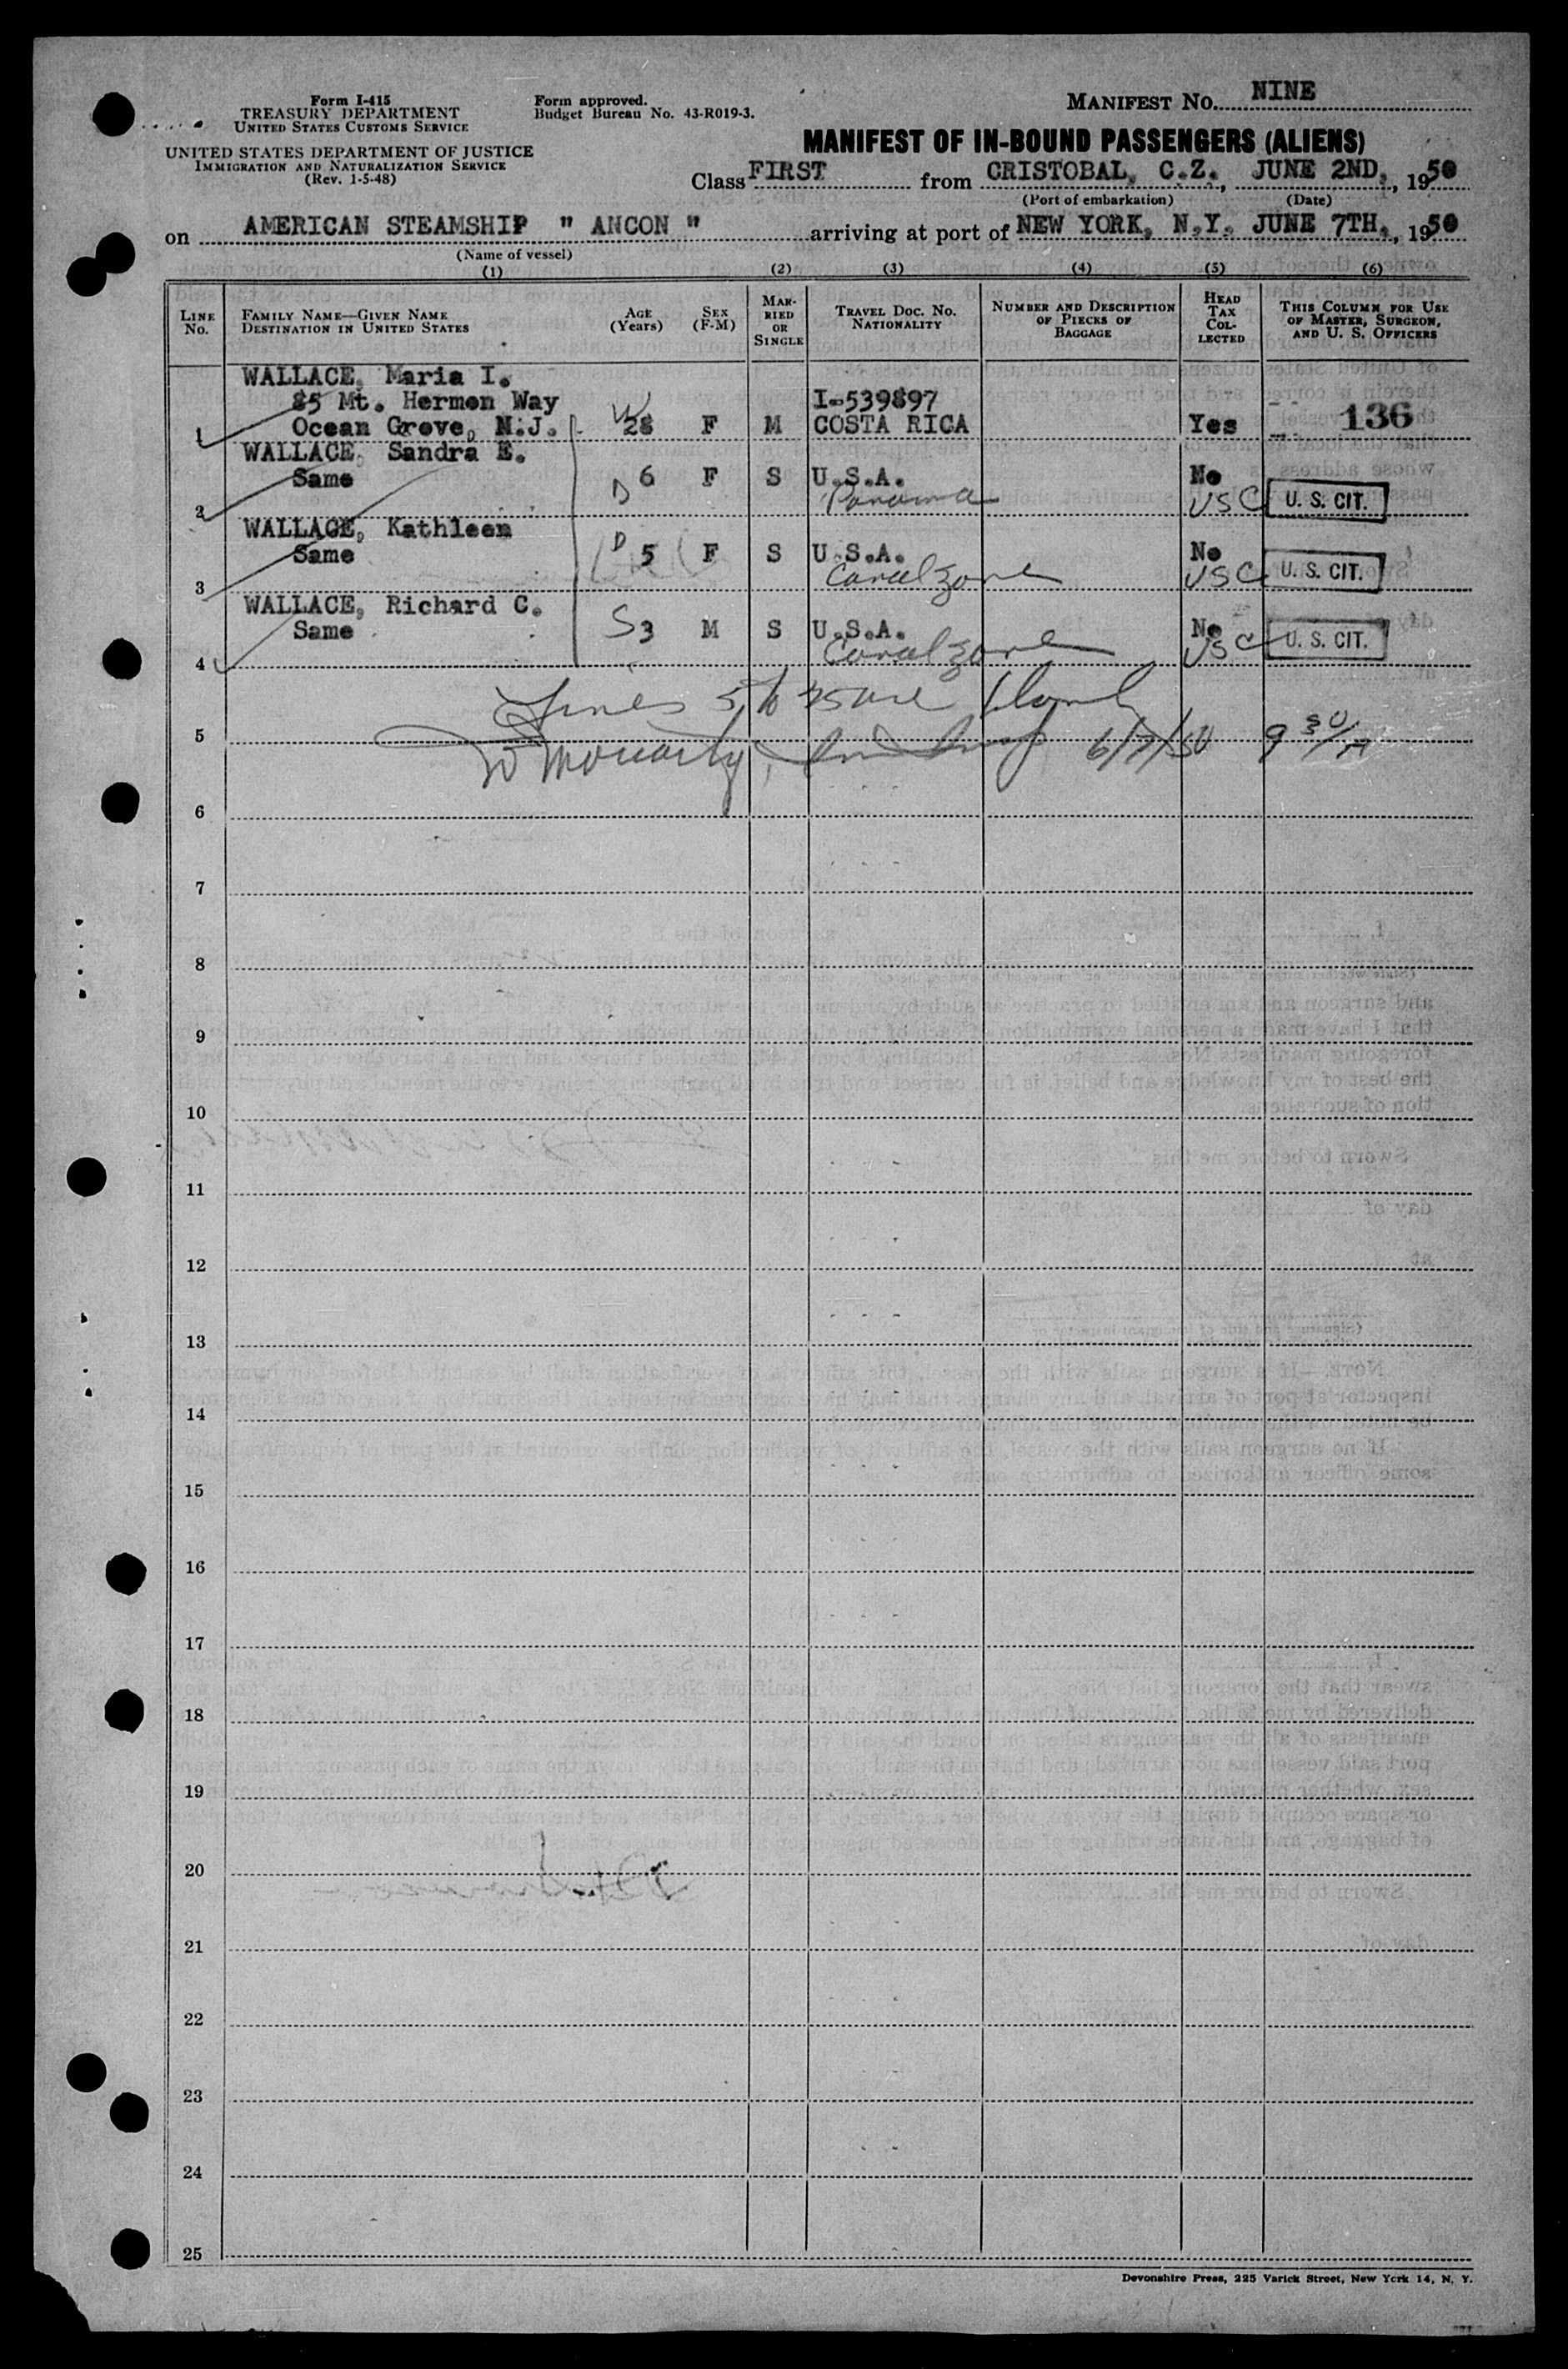 Form I-415
TREASURY DEPARTMENT
UNITED STATES CUSTOMS SERVICE
UNITED STATES DEPARTMENT OF JUSTICE
IMMIGRATION AND NATURALIZATION SERVICE
(Rev. 1-5-48)
Form approved.
Budget Bureau No. 43-R019-3.
MANIFEST NO. NINE
MANIFEST OF IN-BOUND PASSENGERS (ALIENS)
Class FIRST from CRISTOBAL, C.Z., JUNE 2ND, 1950
(Port of embarkation) (Date)
on AMERICAN STEAMSHIP " ANCON " arriving at port of NEW YORK, N.Y. JUNE 7TH, 1950
(Name of vessel)
(1) (2) (3) (4) (5) (6)
LINE No. FAMILY NAME—GIVEN NAME DESTINATION IN UNITED STATES AGE (Years) SEX (F-M) MARRIED OR SINGLE TRAVEL DOC. NO. NATIONALITY NUMBER AND DESCRIPTION OF PIECES OF BAGGAGE HEAD TAX COLLECTED THIS COLUMN FOR USE OF MASTER, SURGEON, AND U. S. OFFICERS
WALLACE, Maria I.
85 Mt. Hermon Way I-539897
1 Ocean Grove, N.J. W 28 F M COSTA RICA Yes 136
WALLACE, Sandra E.
Same D 6 F S U.S.A. No
2 Panama USC U. S. CIT.
WALLACE, Kathleen
Same D 5 F S U.S.A. No
3 Canal Zone USC U. S. CIT.
WALLACE, Richard C.
Same S 3 M S U.S.A. No
4 Canal Zone USC U. S. CIT.
Lines 5 to 25 are blank
5 W Moriarty, 6/7/50 9 30/A
6
7
8
9
10
11
12
13
14
15
16
17
18
19
20
21
22
23
24
25
Devonshire Press, 225 Varick Street, New York 14, N. Y.